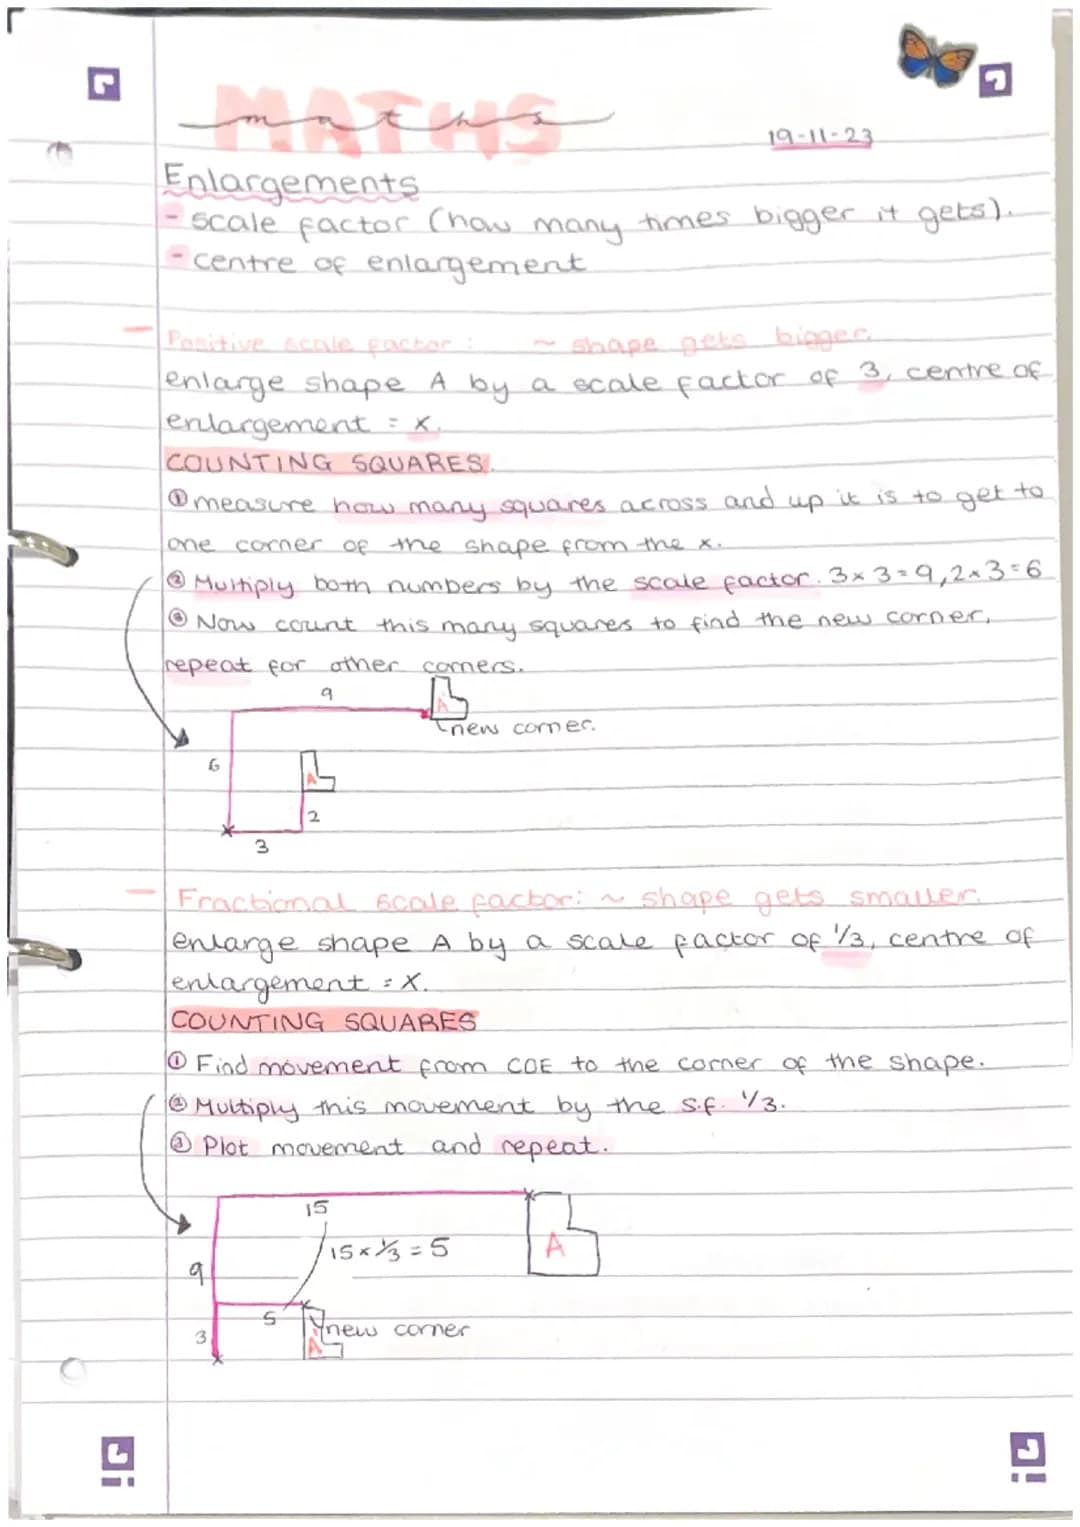 MATHS
maths
19-11-23
Enlargements
- scale factor (how many times bigger it gets).
- centre of enlargement
- Positive scale factor : ~ shape gets bigger.
enlarge shape A by a scale factor of 3, centre of
enlargement = x.
COUNTING SQUARES.
① measure how many squares across and up it is to get to
one corner of the shape from the x.
② Multiply both numbers by the scale factor. 3×3=9, 2×3=6
③ Now count this many squares to find the new corner,
repeat for other corners.
9
A
new corner.
6
A
2
3
- Fractional scale factor: ~ shape gets smaller.
enlarge shape A by a scale factor of 1/3, centre of
enlargement = x.
COUNTING SQUARES
① Find movement from COE to the corner of the shape.
② Multiply this movement by the s.f. 1/3.
③ Plot movement and repeat.
15
15 × 1/3 = 5
A
9
5
new corner
3
A